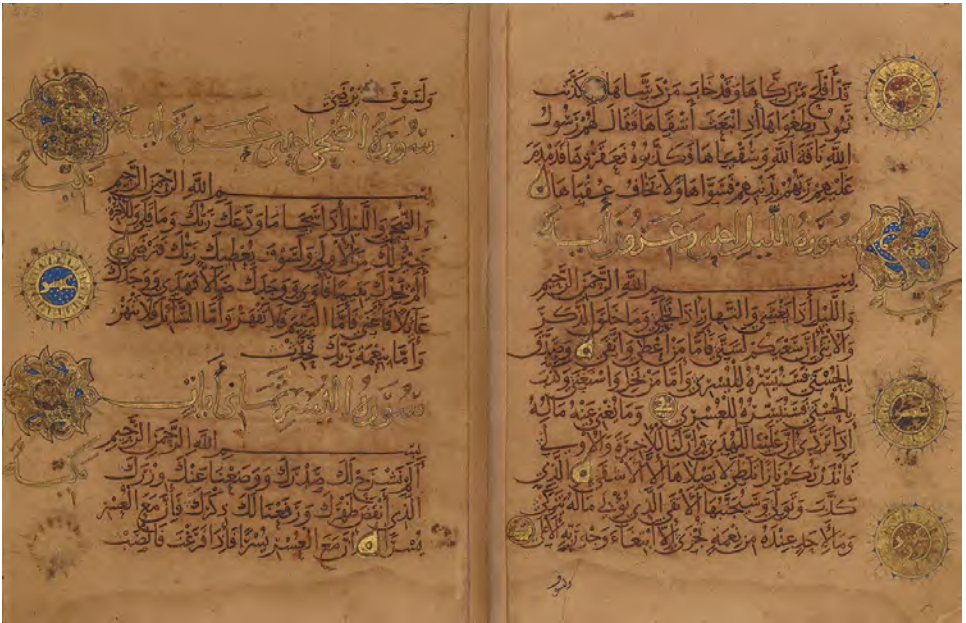 قد أفلح من زكاها وقد خاب من دساها كذبت
ثمود بطغواها إذ انبعث أشقاها فقال لهم رسول
الله ناقة الله وسقياها فكذبوه فعقروها فدمدم
عليهم ربهم بذنبهم فسواها ولا يخاف عقباها
سورة الليل إحدى وعشرون آية
مكية
بسم الله الرحمن الرحيم
والليل إذا يغشى والنهار إذا تجلى وما خلق الذكر
والأنثى إن سعيكم لشتى فأما من أعطى واتقى وصدق
بالحسنى فسنيسره لليسرى وأما من بخل واستغنى وكذب
بالحسنى فسنيسره للعسرى وما يغني عنه ماله
إذا تردى إن علينا للهدى وإن لنا للآخرة والأولى
فأنذرتكم نارا تلظى لا يصلاها إلا الأشقى الذي
كذب وتولى وسيجنبها الأتقى الذي يؤتي ماله يتزكى
وما لأحد عنده من نعمة تجزى إلا ابتغاء وجه ربه الأعلى
ولسوف
ولسوف يرضى
سورة الضحى إحدى عشرة آية
مكية
بسم الله الرحمن الرحيم
والضحى والليل إذا سجى ما ودعك ربك وما قلى وللآخرة
خير لك من الأولى ولسوف يعطيك ربك فترضى
ألم يجدك يتيما فآوى ووجدك ضالا فهدى ووجدك
عائلا فأغنى فأما اليتيم فلا تقهر وأما السائل فلا تنهر
وأما بنعمة ربك فحدث
سورة ألم نشرح ثماني آيات
مكية
بسم الله الرحمن الرحيم
ألم نشرح لك صدرك ووضعنا عنك وزرك
الذي أنقض ظهرك ورفعنا لك ذكرك فإن مع العسر
يسرا إن مع العسر يسرا فإذا فرغت فانصب